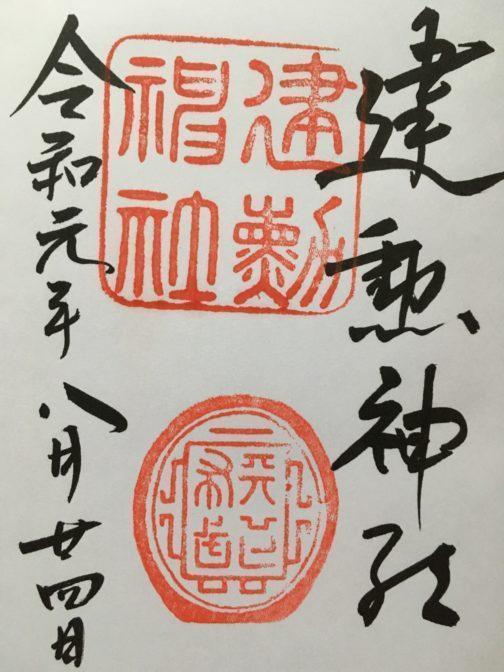 建勲神社
建勲
神社
天下布武
令和元年八月廿四日